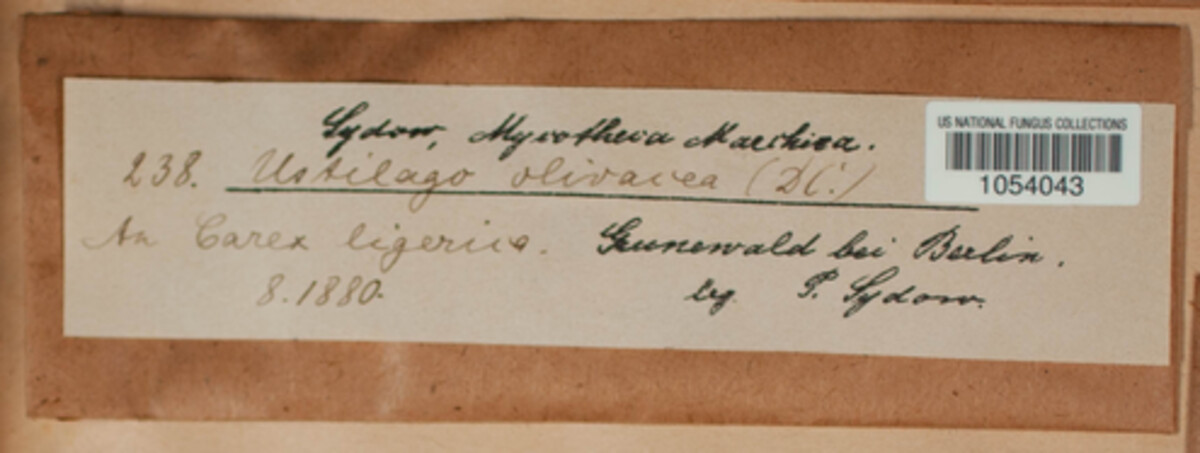 Sydow, Mycotheca Marchica.
238. Ustilago olivacea (DC.)
An Carex ligerica. Grunewald bei Berlin.
8.1880. leg. P. Sydow.
US NATIONAL FUNGUS COLLECTIONS
1054043